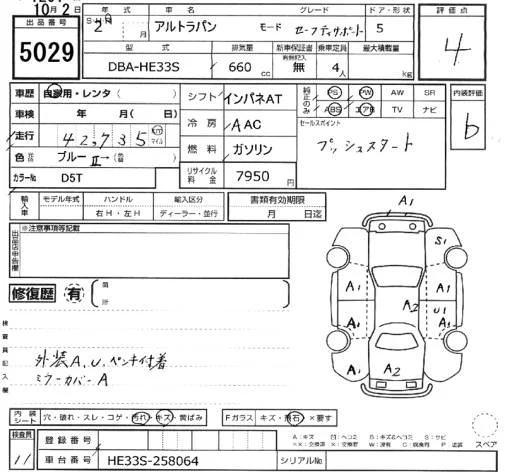 10月2
出品番号 年式 車名 グレード ドア・形状 評価点
5029 2 月 アルトラパン モード セーフティサポート 5 4
型式 排気量 新車保証書 乗車定員 最大積載量
有無記入
DBA-HE33S 660 cc 無 4人 kg
車歴 自家用・レンタ ( ) シフト インパネAT 純正のみ PS PW AW SR 内装評価
ABS エアB TV ナビ
車検 年 月( 日) 冷房 AAC セールスポイント b
走行 42,735 km マイル 燃料 ガソリン プッシュスタート
色 ブルーII→ ( )
カラーNo D5T リサイクル料金 7950 円
輸入車 モデル年式 ハンドル 輸入区分 書類有効期限
右H・左H ディーラー・並行 月 日迄
出品店申告欄 ※注意事項等記載
A1
S1
A1 A1
A2 U1
A1 A1
A2
修復歴 有 箇所
検査員記入欄
外装A、U、ペンキ付着
ミラーカバーA
内装シート 穴・破れ・スレ・コゲ・汚れ・キズ・黄ばみ Fガラス キズ・飛石・×要す
スペア
検査員 登録番号 A:キズ U:ヘコミ B:キズ&ヘコミ S:サビ
11 車台番号 HE33S-258064 シリアルNo